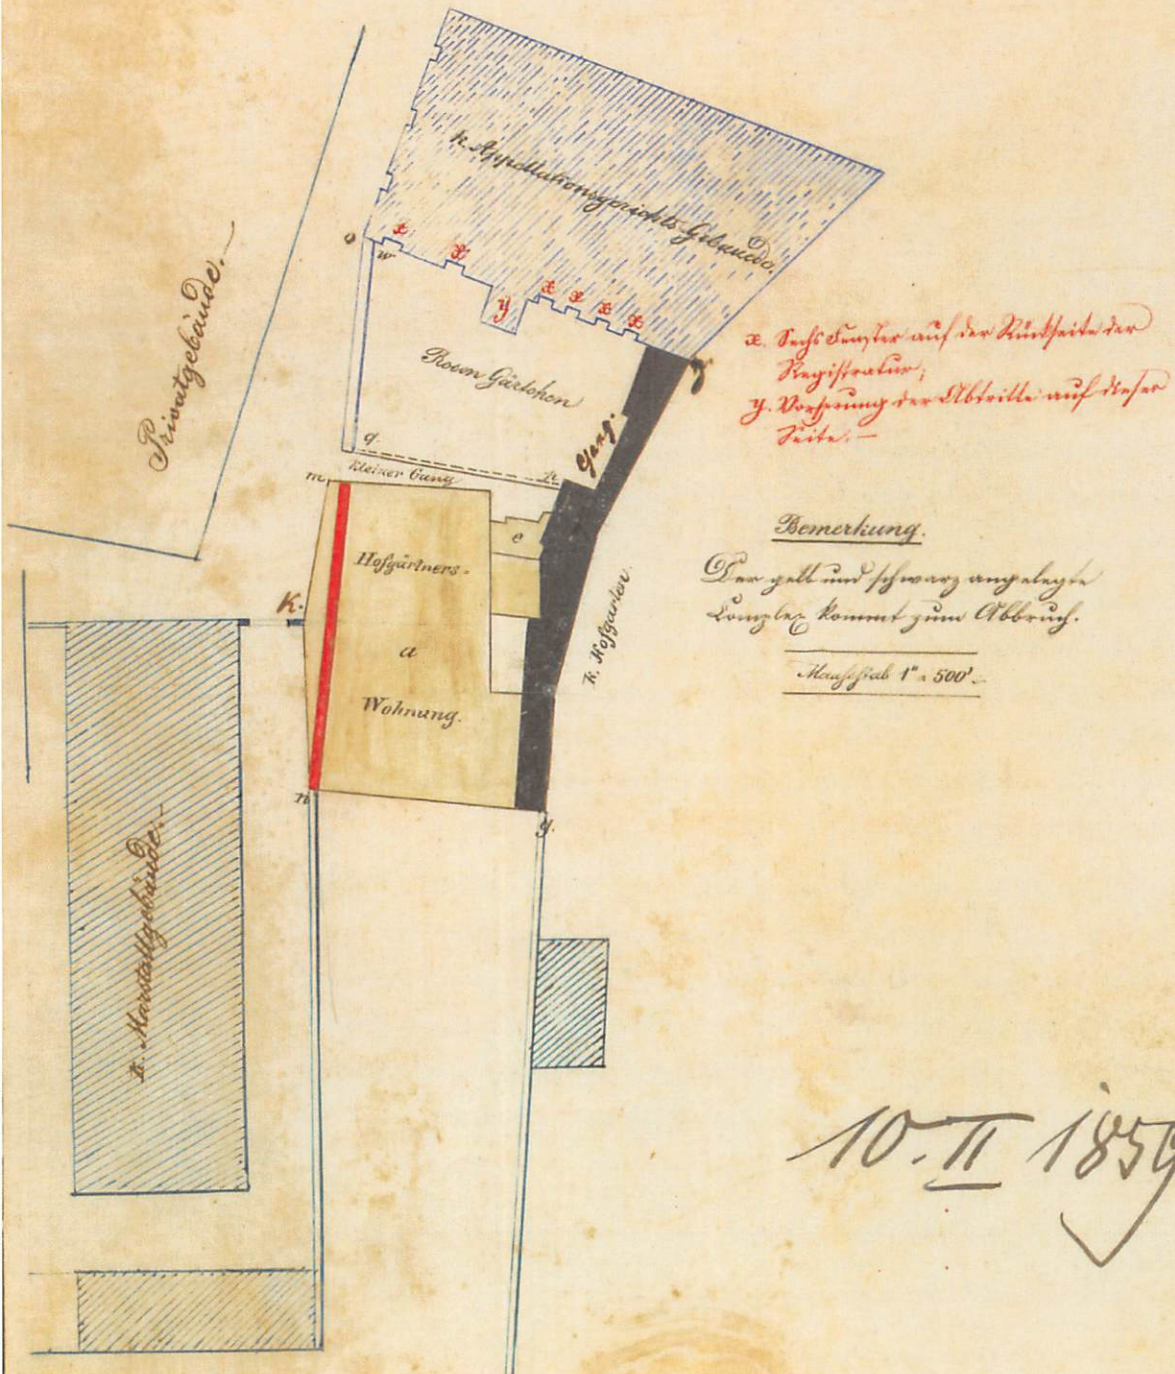 k. Appellationsgerichts-Gebäude.
x
x
x
x
x
x
y
o
w
z
Privatgebäude.
Rosen Gärtchen
Gang.
q.
kleiner Gang
m
x. Sechs Fenster auf der Rückseite der
Registratur;
y. Vorsprung der Abtritte auf dieser
Seite.
Bemerkung.
Der gelb und schwarz angelegte
Complex kommt zum Abbruch.
Maasstab 1" = 500'
e
Hofgärtners-
a
Wohnung.
k. Hofgarten
K.
n
g.
k. Marstallgebäude.
10. II 1859